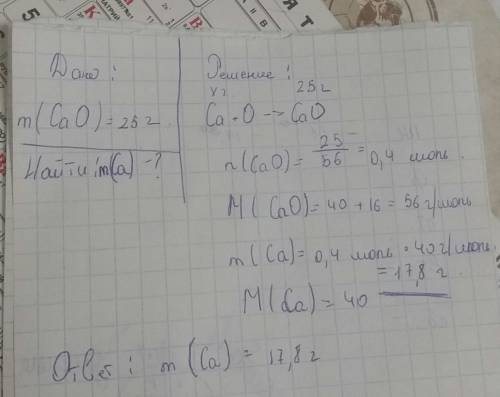 Дано:
m(CaO) = 25 г.
Найти: m(Ca) - ?
Решение:
x г 25 г
Ca + O → CaO
n(CaO) = 25/56 = 0,4 моль.
M(CaO) = 40 + 16 = 56 г/моль
m(Ca) = 0,4 моль • 40 г/моль.
= 17,8 г.
M(Ca) = 40
Ответ: m(Ca) = 17,8 г